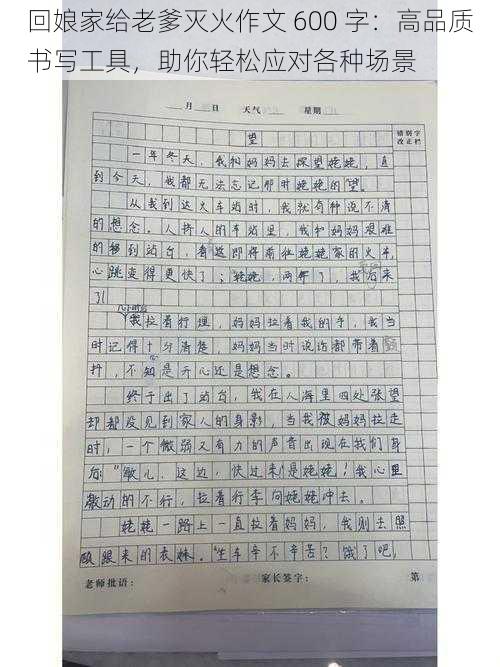 回娘家给老爹灭火作文 600 字：高品质
书写工具，助你轻松应对各种场景
月 日 天气 星期
望
错别字
改正栏
一年冬天，我和妈妈去探望姥姥，直
到今天，我都无法忘记那时姥姥的望。
从我到达火车站时，我就有种说不清
的想念。人挤人的车站里，我和妈妈艰难
的移到站台，看这即将前往姥姥家的火车，
心跳变得更快了；姥姥，两年了，我 来
了！
几小时后
我拉着行理，妈妈拉着我的手，我当
时记得十分清楚，妈妈当时说话都带着颤
抖，不知是开心还是想念。
终于出了站台，我在人海里四处张望
却都没见到家人的身影，当我被妈妈拉走
时，一个微弱又有力的声音出现在我们身
后："敏儿，这边，快过来！是姥姥！我心里
激动的不行，拉着行李向姥姥冲去。
姥姥一路上一直拉着妈妈，我则去照
顾跟来的表妹。"坐车辛不辛苦？饿了吧，
老师批语： 家长签字： 第